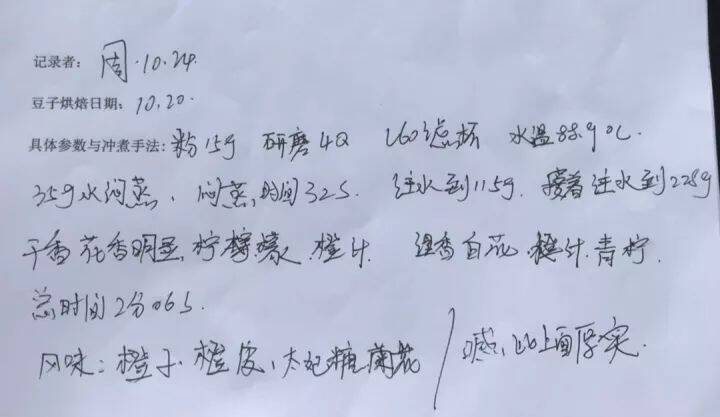 记录者: 周.10.24.
豆子烘焙日期: 10.20.
具体参数与冲煮手法: 粉15g 研磨4Q V60滤杯 水温88.9℃.
35g水闷蒸, 闷蒸时间32S. 注水到115g. 接着注水到225g
干香 花香明显, 柠檬 橙汁 湿香 白花 橙汁 青柠.
总时间2分06s.
风味: 橙子. 橙皮, 太妃糖 兰花 / 口感, 比上面厚实.